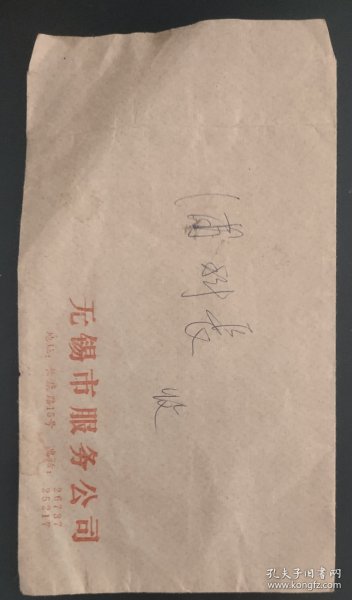 科长 收
无锡市服务公司
地址: 路15号 电话: 26737
25217
孔夫子旧书网
www.kongfz.com